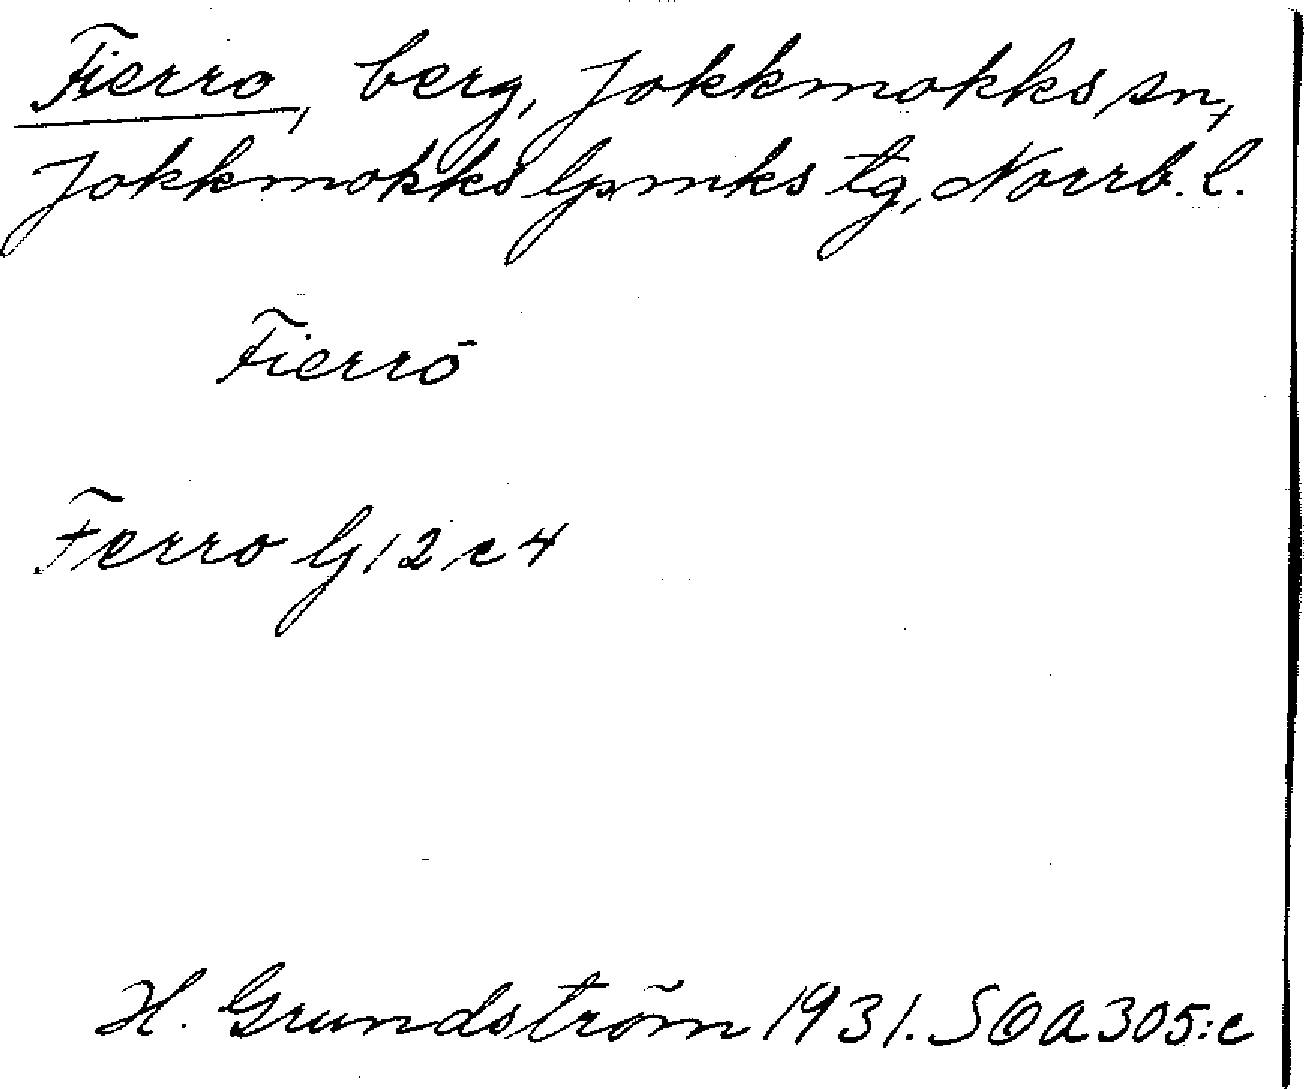 Fierro, berg, Jokkmokks sn,
Jokkmokks lpmks tg, Norrb. l.
Fierrō
Ferro G 12 c 4
H. Grundström 1931. SOA 305:c